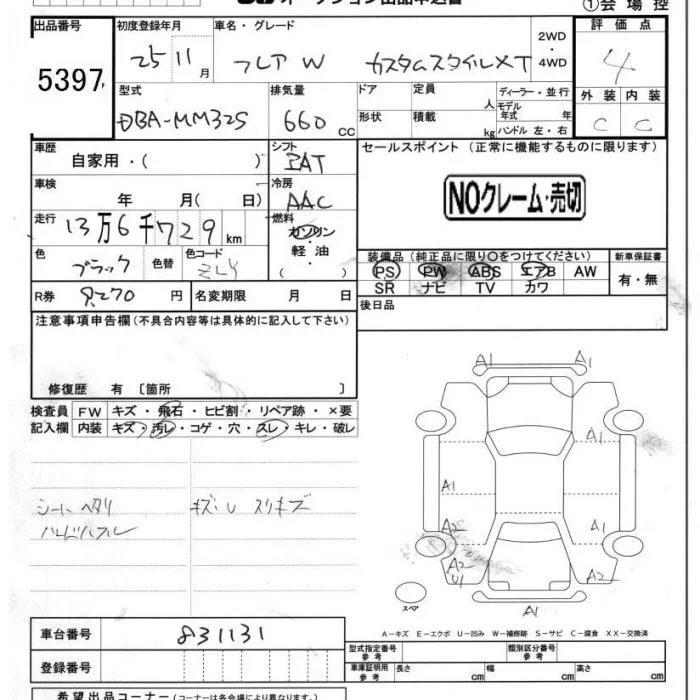 オークション出品申込書
①会場控
出品番号 初度登録年月 車名・グレード 2WD・4WD 評価点
5397 25 11月 フレア W カスタムスタイル XT 4
型式 排気量 ドア 定員 人 ディーラー・並行 外装 内装
DBA-MM32S 660 cc 形状 積載 kg モデル年式 年 ハンドル 左・右 C C
車歴 自家用・( ) シフト セールスポイント (正常に機能するものに限ります)
車検 年 月( 日) 冷房 AAC
NOクレーム・売切
走行 13万6千729km 燃料 ガソリン 軽油 ( )
色 ブラック 色替 色コード
装備品 (純正品に限り○をつけてください) 新車保証書
PS PW ABS エアB AW 有・無
SR ナビ TV カワ
R券 8270円 名変期限 月 日 後日品
注意事項申告欄 (不具合内容等は具体的に記入して下さい)
修復歴 有 〔箇所 〕
検査員 FW キズ・飛石・ヒビ割・リペア跡・×要
記入欄 内装 キズ・汚レ・コゲ・穴・スレ・キレ・破レ
シートヘタリ キズU スリキズ
ハンドルスレ
A1 A1
A1
A1
A2 A1
A2 U1 A2
A1
スペア
A-キズ E-エクボ U-凹み W-補修跡 S-サビ C-腐食 XX-交換済
車台番号 831131
型式指定番号 参考 類別区分番号 参考
登録番号 車庫証明用 参考 長さ cm 幅 cm 高さ cm
希望出品コーナー (コーナーは各会場により異なります。)